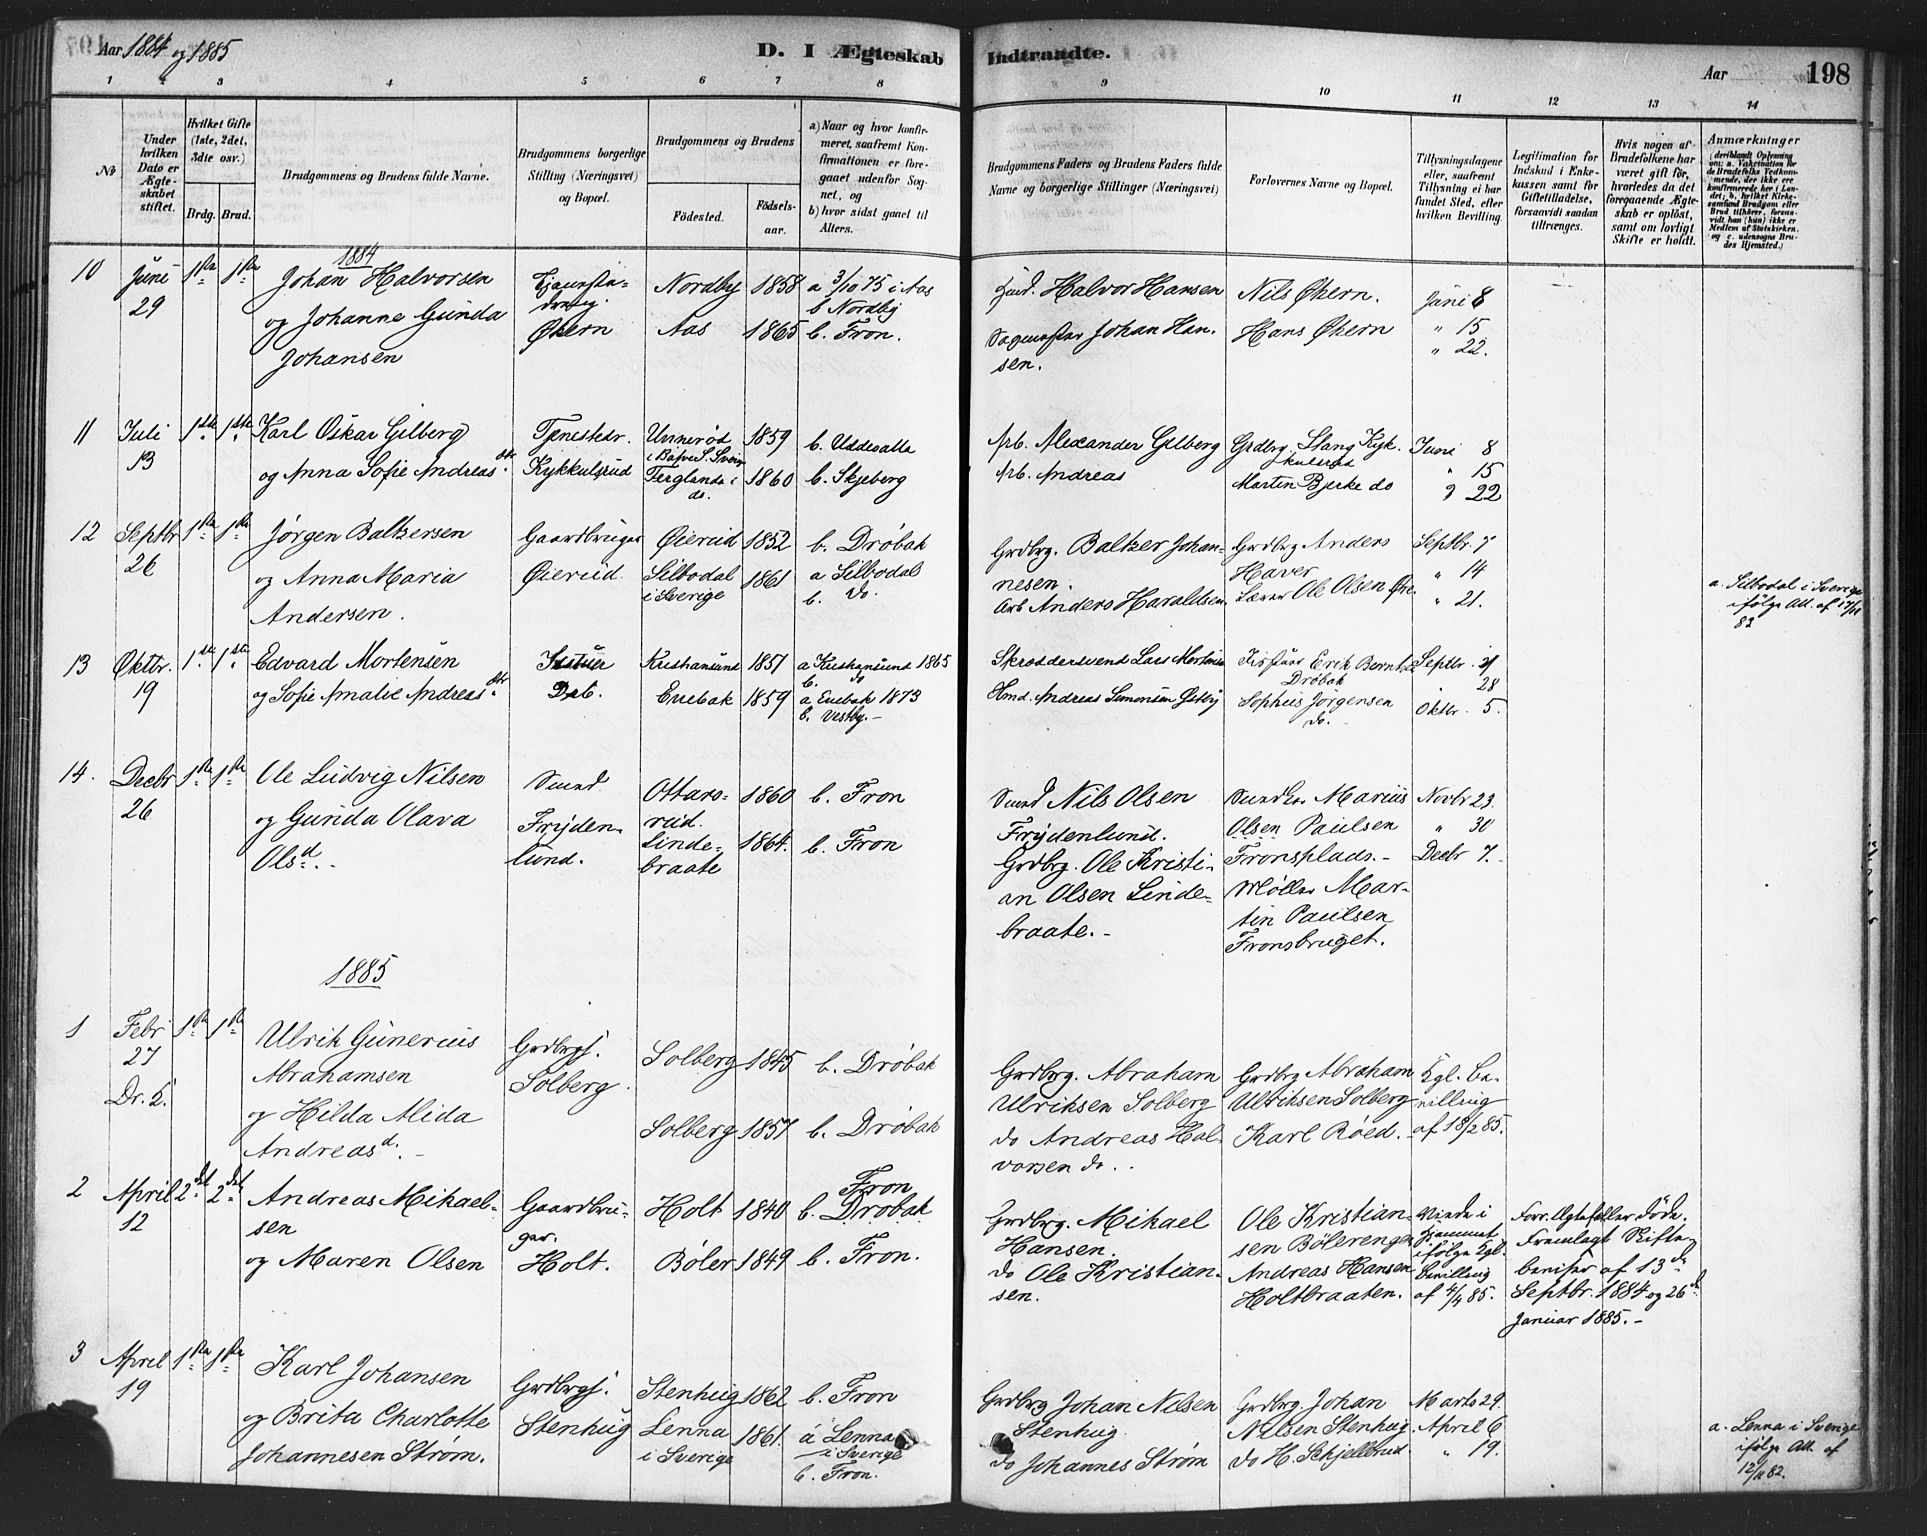 Aar 1884 og 1885
D. I Ægteskab Indtraadte.
Aar 198
1 2 3 4 5 6 7 8 9 10 11 12 13 14
No
Under hvilken Dato er Ægteskabet stiftet.
Hvilket Gifte (1ste, 2det, 3die osv.)
Brdg. Brud.
Brudgommens og Brudens fulde Navne.
Brudgommens borgerlige Stilling (Næringsvei) og Bopæl.
Brudgommens og Brudens
Fødested. Fødselsaar.
a) Naar og hvor konfirmeret, saafremt Konfirmationen er foregaaet udenfor Sognet, og
b) hvor sidst gaaet til Alters.
Brudgommens Faders og Brudens Faders fulde Navne og borgerlige Stillinger (Næringsvei)
Forlovernes Navne og Bopæl.
Tillysningsdagene eller, saafremt Tillysning ei har fundet Sted, efter hvilken Bevilling.
Legitimation for Indskud i Enkekassen samt for Giftetilladelse, forsaavidt saadan tiltrænges.
Hvis nogen af Brudefolkene har været gift før, hvorledes da det foregaaende Ægteskab er opløst, samt om lovligt Skifte er holdt.
Anmærkninger
1884
10 Juni 29 1ste 1ste
Johan Halvorsen
og Johanne Gunda
Johansen
Økern
Nordby 1858 a 3/10 75 i Aas
b Nordby
Aas 1865 b. Fron.
Halvor Hansen
Johan Hansen.
Nils Økern.
Hans Økern
Juni 8
" 15
" 22.
11 Juli 13 1ste 1ste
Karl Oskar Gilberg
og Anna Sofie Andreasdtr.
Tjenestedr.
Kykkulsrud
1859 b. Uddevalla
1860 b. Skjeberg
Arb. Alexander Gilberg
Arb. Andreas
Grdbrg. Stang Kykkulsrud
Martin Bjerke do
Juni 8
" 15
" 22
12 Septbr 26 1ste 1ste
Jørgen Baltzersen
og Anna Maria
Andersen.
Gaardbruger
Øierud
Øierud 1852 b. Drøbak
Silbodal i Sverige 1861 a Silbodal
b. do.
Grdbrg. Baltzer Johannesen.
Arb Anders Haraldsen.
Grdbrg Anders
Haver
Lærer Ole Olsen
Septbr. 7
" 14
" 21.
a. Silbodal i Sverige
ifølge Att. af
82
13 Oktbr. 19 1ste 1ste
Edvard Mortensen
og Sofie Amalie Andreasdtr.
Kristiansund 1857 a Kristiansund 1865
b. do
Enebak 1859 a Enebak 1873
b. Vestby.-
Skræddersvend Lars
Hmd. Andreas Simonsen
Erik
Drøbak
Sophus Jørgensen
do.
Septbr. 21
28
Oktbr. 5.
14. Decbr 26 1ste 1ste
Ole Ludvig Nilsen
og Gunda Olava
Olsd.
Smed
Frydenlund.
Ottarsrud. 1860 b. Fron
Lindebraate 1864. b. Fron
Smed Nils Olsen
Frydenlund.
Grdbrg. Ole Kristian Olsen Lindebraate.-
Marius
Olsen Paulsen
Fronsplads.-
Møller Martin Paulsen
Fronsbruget.
Novbr 23.
" 30
Decbr 7.
1885
1 Febr 27 1ste 1ste
Dr. K.
Ulrik Gunerius
Abrahamsen
og Hilda Alida
Andreasd.-
Grdbrgs.
Solberg.
Solberg 1845 b. Drøbak
Solberg 1857 b. Drøbak
Grdbrg. Abraham
Ulriksen Solberg
do Andreas Halvorsen do.
Grdbrg Abraham
Ulriksen Solberg
Karl Røed.
Kgl. Bevilling
af 18/2 85.
2 April 12 2det 2det
Andreas Mikaelsen
og Maren Olsen
Gaardbruger.
Holt.
Holt 1840 b. Fron Drøbak
Bøler 1849 b. Fron.
Grdbrg. Mikael
Hansen.
do Ole Kristiansen.
Ole Kristiansen Bølerengen
Andreas Hansen
Holtbraaten.
Viede i
Hjemmet
ifølge Kgl.
Bevilling
af 4/4 85.
Forr. Ægtefæller døde.
Fremlagt Skiftebeviser af 13de
Septbr. 1884 og 26de
Januar 1885.-
3 April 19 1ste 1ste
Karl Johansen
og Brita Charlotte
Johannesen Strøm.
Grdbrgs.
Stenhug
Stenhug 1862 b. Fron
Lenna i Sverige 1861. a Lenna
i Sverige
b. Fron.
Grdbrg Johan Nilsen
Stenhug
do Johannes Strøm
Grdbrg. Johan
Nilsen Stenhug
do H. Skjellerud
Marts 29.
April 6
" 19.
a. Lenna i Sverige
ifølge Att. af
12/11 82.